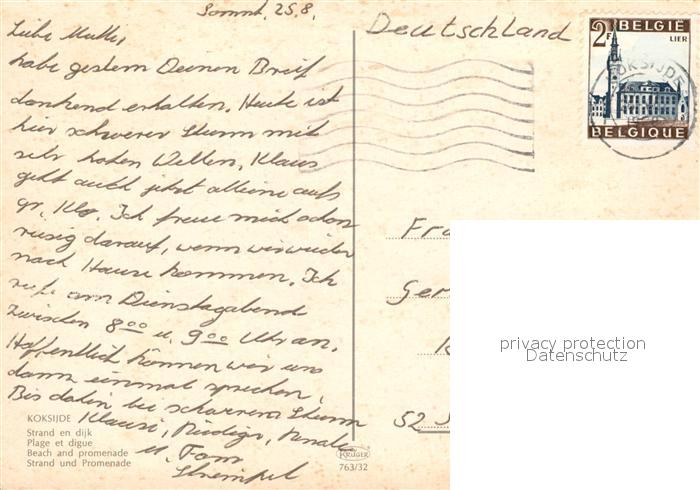 Sonnt. 25.8.
Liebe Mutter,
habe gestern Deinen Brief
dankend erhalten. Heute ist
hier schwerer Sturm mit
sehr hohen Wellen. Klaus
geht auch jetzt alleine aufs
gr. Klo. Ich freue mich schon
riesig darauf, wenn wir wieder
nach Hause kommen. Ich
rufe am Dienstagabend
zwischen 8⁰⁰ u. 9⁰⁰ Uhr an.
Hoffentlich können wir uns
dann einmal sprechen.
Bis dahin bei schwerem Sturm
Klausi, Rüdiger, Renate
u. Tom
KOKSIJDE
Strand en dijk
Plage et digue
Beach and promenade
Strand und Promenade
KRUGER
763/32
Deutschland
2F BELGIË
LIER
BELGIQUE
KOKSIJDE
Fra
Ger
52
privacy protection
Datenschutz